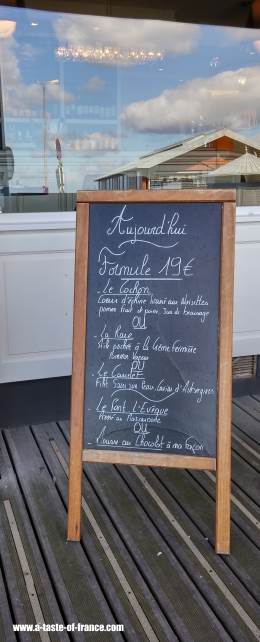 Aujourd'hui
Formule 19€
. Le Cochon
Coeur d'échine aux Noisettes
pomme fruit et poire, Jus de braisage
OU
. La Raie
Aile pochée à la Crème Fermière
Pomme Vapeur
OU
. Le
Filet sur Peau, d'Aubergines
. Le Pont L'Evêque
OU
. Mousse au Chocolat à ma façon
www.a-taste-of-france.com